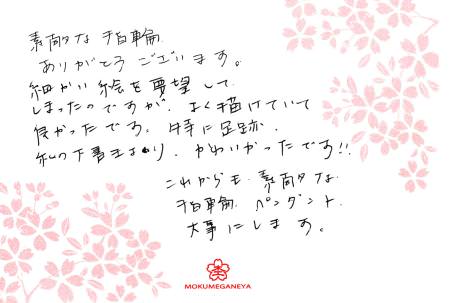 素敵な指輪
ありがとうございます。
細かい絵を要望して
しまったのですが、よく描けていて
良かったです。特に足跡、
私の下書きより、かわいかったです!!
これからも、素敵な
指輪、ペンダント、
大事にします。
MOKUMEGANEYA